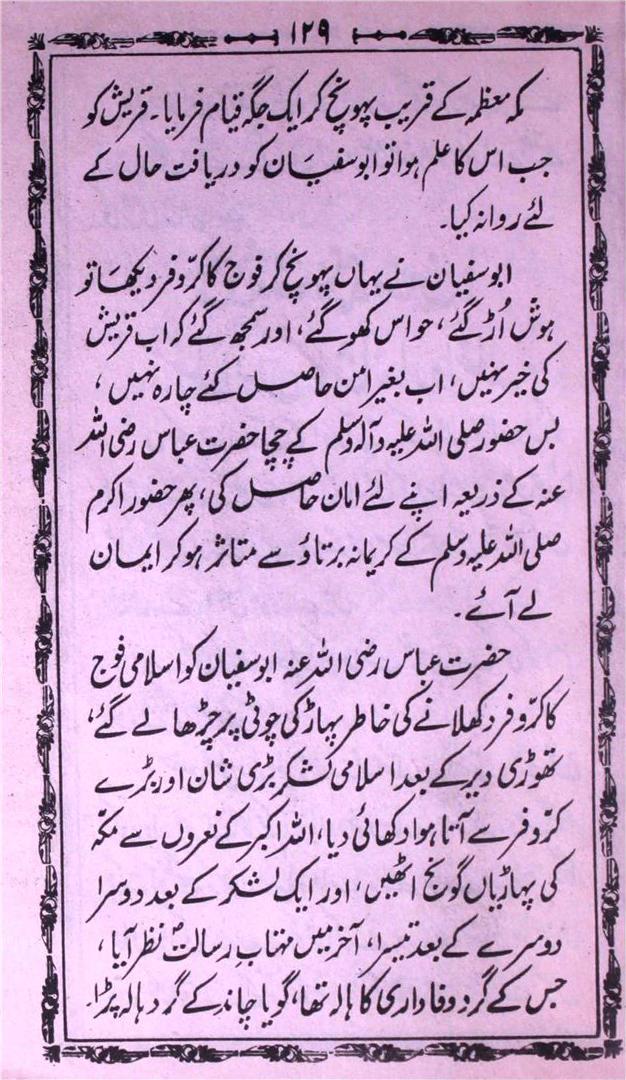 ۱۲۹
مکہ معظمہ کے قریب پہونچ کر ایک جگہ قیام فرمایا۔ قریش کو
جب اس کا علم ہوا تو ابوسفیان کو دریافت حال کے
لئے روانہ کیا۔
ابوسفیان نے یہاں پہونچ کر فوج کا کرّوفر دیکھا تو
ہوش اُڑ گئے، حواس کھو گئے، اور سمجھ گئے کہ اب قریش
کی خیر نہیں، اب بغیر امن حاصل کئے چارہ نہیں،
بس حضور صلی اللہ علیہ وآلہ وسلم کے چچا حضرت عباس رضی اللہ
عنہ کے ذریعہ اپنے لئے امان حاصل کی، پھر حضور اکرم
صلی اللہ علیہ وسلم کے کریمانہ برتاؤ سے متاثر ہو کر ایمان
لے آئے۔
حضرت عباس رضی اللہ عنہ ابوسفیان کو اسلامی فوج
کا کرّوفر دکھلانے کی خاطر پہاڑ کی چوٹی پر چڑھا لے گئے،
تھوڑی دیر کے بعد اسلامی لشکر بڑی شان اور بڑے
کرّوفر سے آتا ہوا دکھائی دیا، اللہ اکبر کے نعروں سے مکہ
کی پہاڑیاں گونج اٹھیں، اور ایک لشکر کے بعد دوسرا
دوسرے کے بعد تیسرا، آخر میں مہتاب رسالتؐ نظر آیا،
جس کے گرد وفاداری کا ہالہ تھا، گویا چاند کے گرد ہالہ پڑا۔